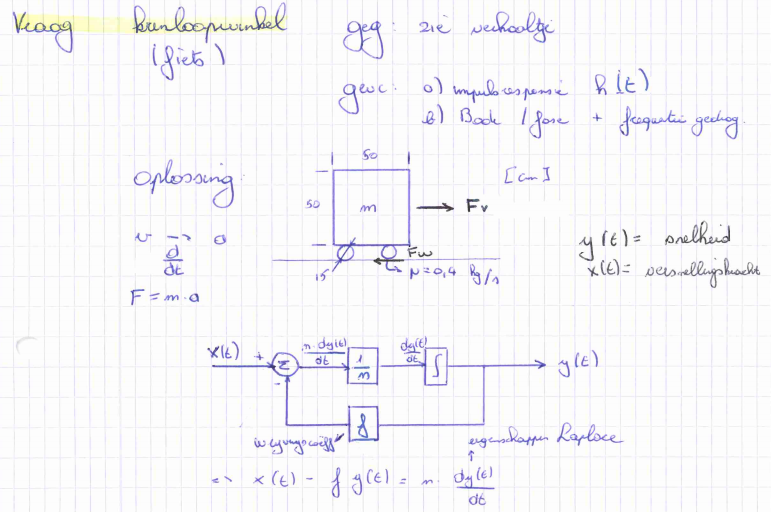 Vraag kunloopwinkel geg: zie verhaaltje
(fiets)
gevr: a) impulsresponsie h(t)
b) Bode / fase + frequentie gedrag.
oplossing:
50
[cm]
50
m
Fv
v → a
d
dt
Fw
y(t) = snelheid
x(t) = versnellingskracht
15
μ=0,4 kg/s
F = m·a
x(t) + Σ m·dy(t)/dt 1/m dy(t)/dt ∫ y(t)
-
f
wrijvingscoëff
eigenschappen Laplace
<=> x(t) - f y(t) = m · dy(t)/dt